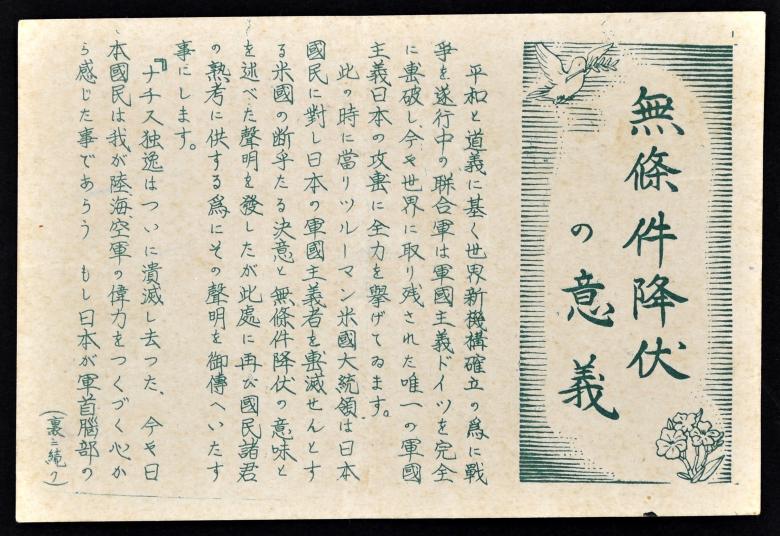 無條件降伏
の意義
平和と道義に基く世界新機構確立の爲に戰
爭を遂行中の聯合軍は軍國主義ドイツを完全
に擊破し今や世界に取り残された唯一の軍國
主義日本の攻擊に全力を擧げてゐます。
此の時に當りツルーマン米國大統領は日本
國民に對し日本の軍國主義者を擊滅せんとす
る米國の断乎たる決意と無條件降伏の意味と
を述べた聲明を發したが此處に再び國民諸君
の熟考に供する爲にその聲明を御傳へいたす
事にします。
『ナチス独逸はついに潰滅し去つた、今や日
本國民は我が陸海空軍の偉力をつくづく心か
ら感じた事であらう もし日本が軍首腦部の
(裏ニ續ク)